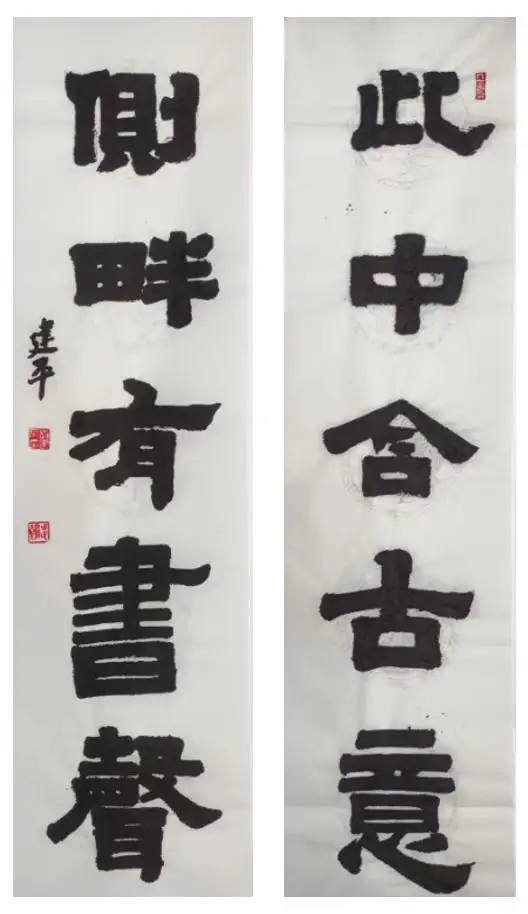 此中含古意
側畔有書聲
建平